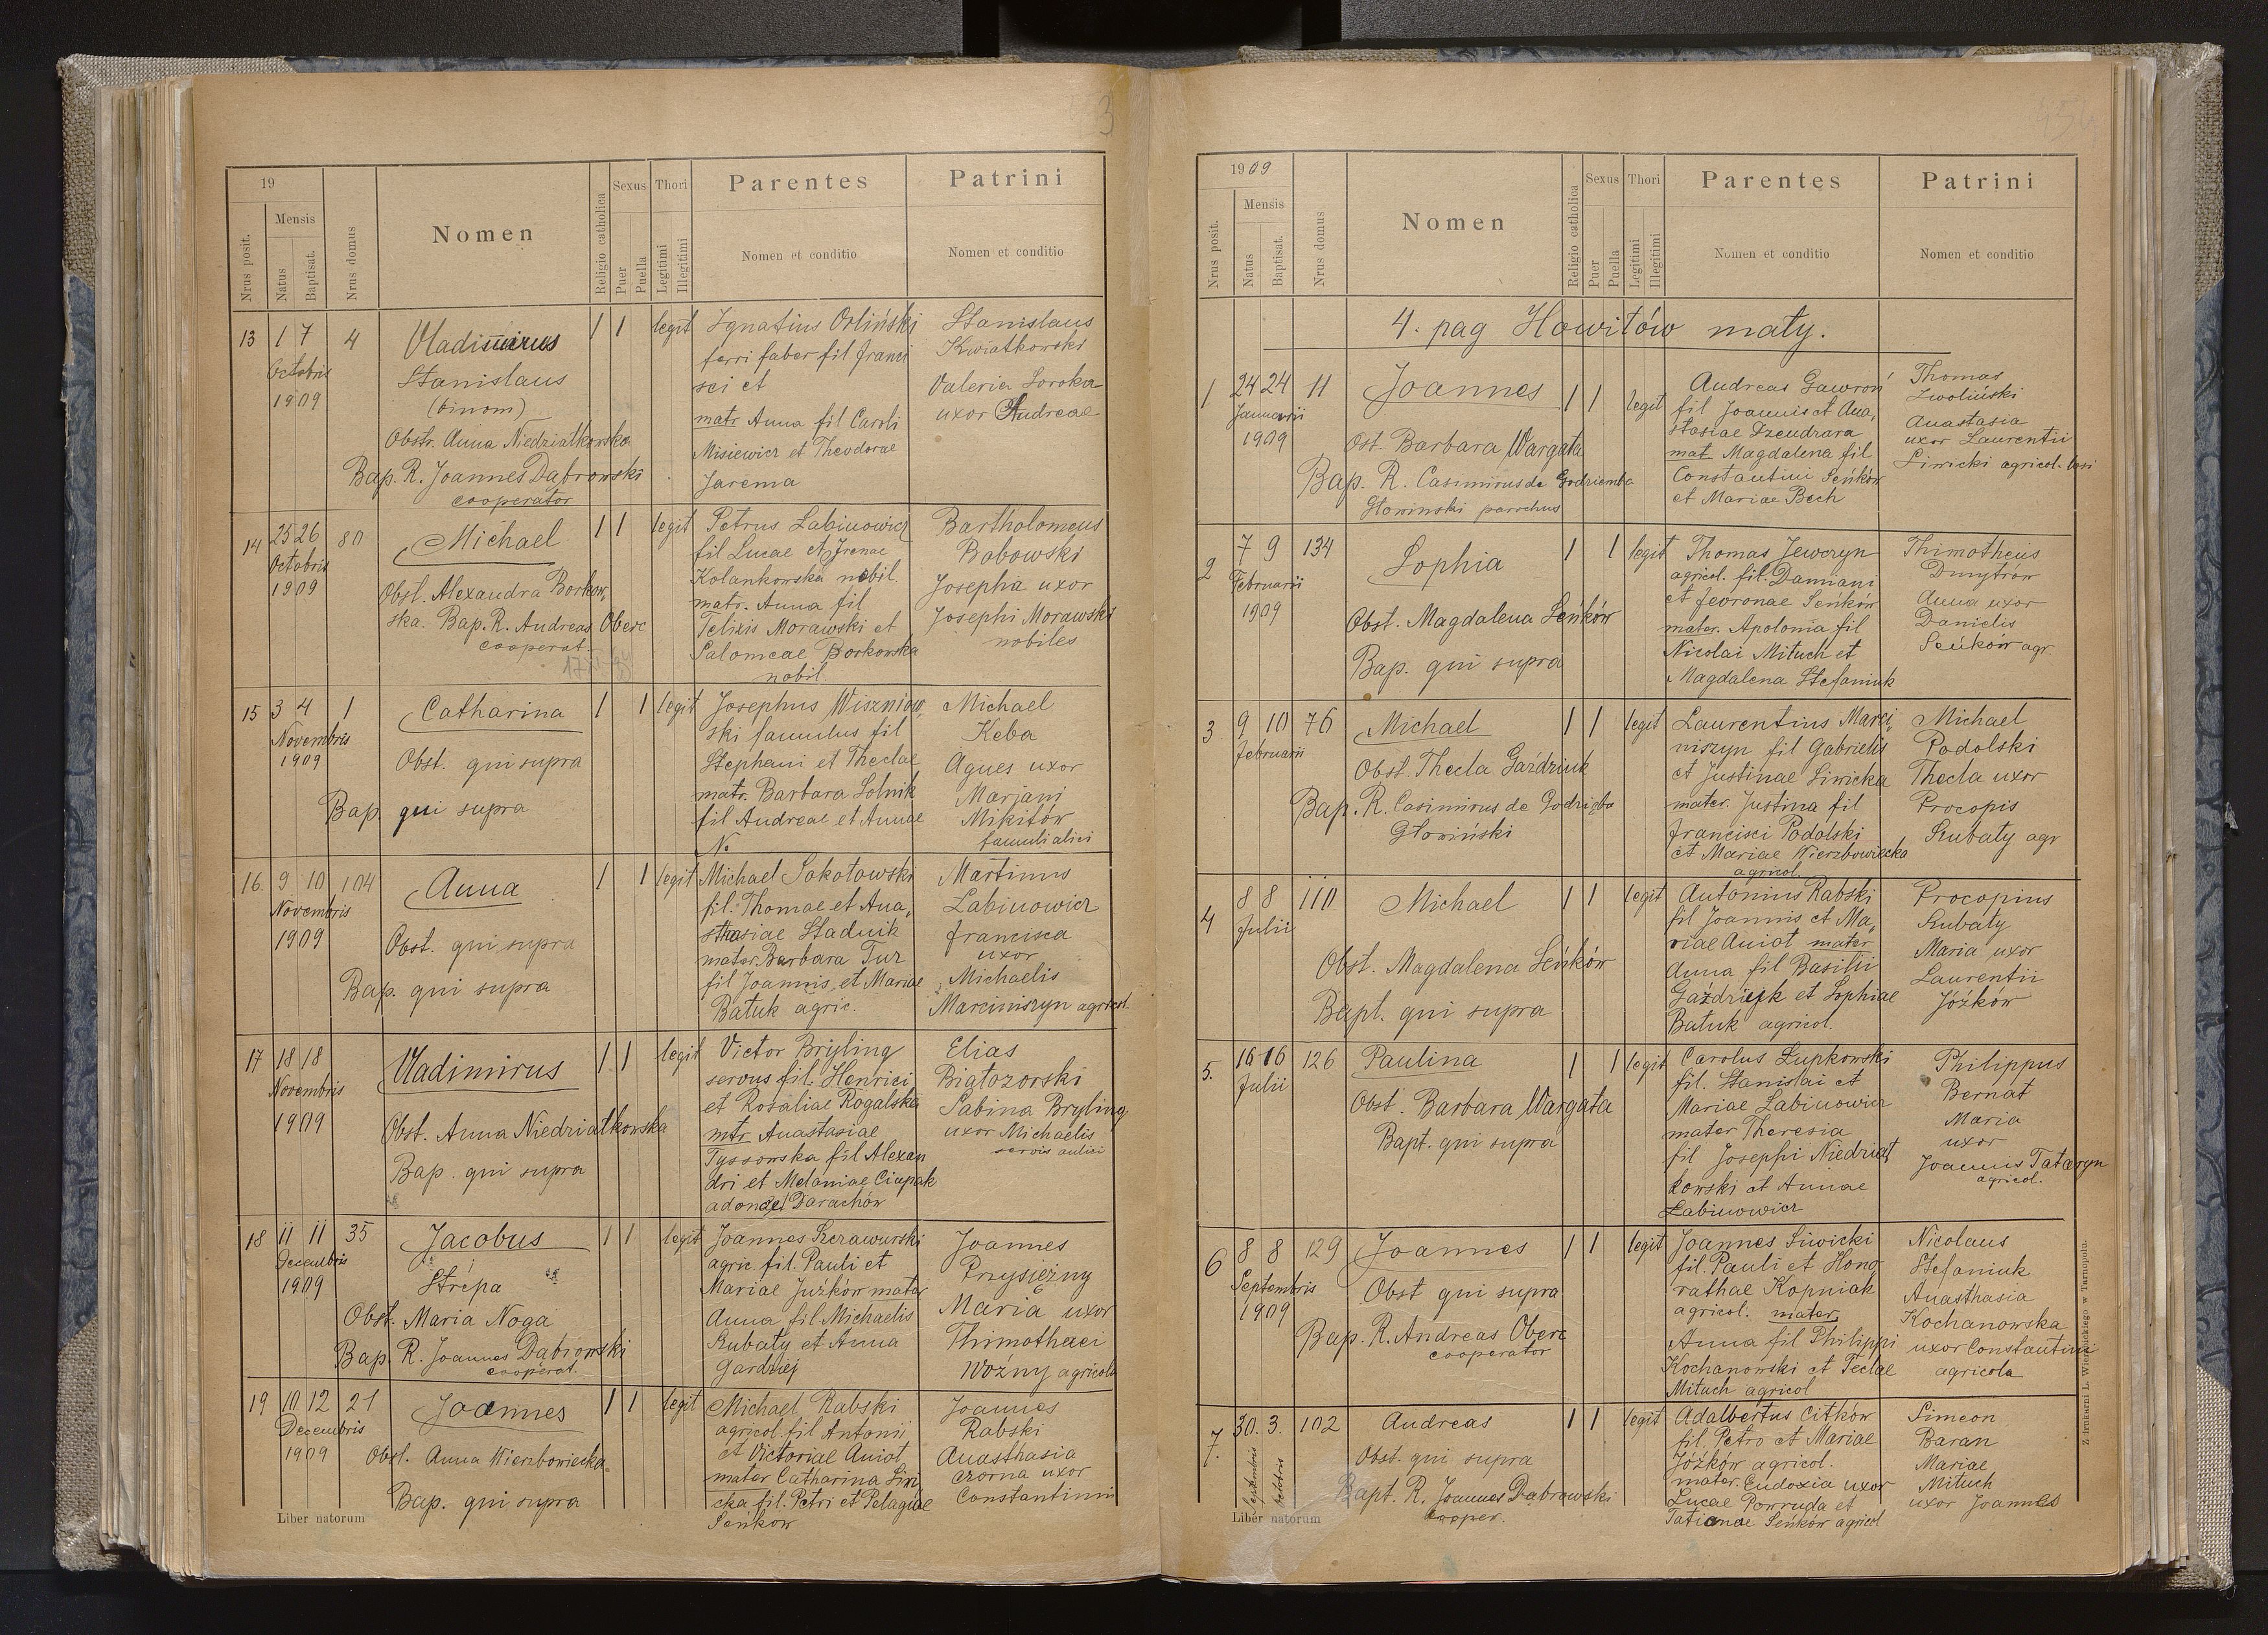 3
19
Mensis
Nrus posit.
Natus
Baptisat.
Nrus domus
Nomen
Religio catholica
Sexus
Puer
Puella
Thori
Legitimi
Illegitimi
Parentes
Nomen et conditio
Patrini
Nomen et conditio
13 1 7 4 Vladimirus 1 1 legit Ignatius Orliński Stanislaus
Octobris Stanislaus ferri faber fil Franci Kwiatkowski
1909 (binom) sci et Valeria Soroka
matr Anna fil Caroli uxor Andreae
Obstr. Anna Niedziałkowska Misiewicz et Theodorae
Bap. R. Joannes Dąbrowski Jarema
cooperator
14 25 26 80 Michael 1 1 legit Petrus Łabinowicz Bartholomeus
Octobris fil Lucae et Irenae Bobowski
1909 Obst. Alexandra Borkow, Kolankowska nobil. Josepha uxor
ska. Bap. R. Andreas Oberc matr. Anna fil Josephi Morawski
cooperat. Felixis Morawski et nobiles
Salomeae Borkowska
nobil.
15 3 4 1 Catharina 1 1 legit Josephus Wiszniow, Michael
Novembris ski famulus fil Keba
1909 Obst. qui supra Stephani et Theclae Agnes uxor
matr. Barbara Solnik Marjani
Bap. qui supra fil Andreae et Annae Mikitów
N. famuli alici
16. 9 10 104 Anna 1 1 legit Michael Sokołowski Martinus
Novembris fil. Thomae et Ana, Łabinowicz
1909 Obst. qui supra sthasiae Stadnik Francisca
mater Barbara Tur uxor
Bap. qui supra fil Joannis et Mariae Michaelis
Batuk agric. Marciniszyn agricol.
17 18 18 Vladimirus 1 1 legit Victor Bryling Elias
Novembris servus fil. Henrici Białozorski
1909 et Rosaliae Rogalska Sabina Bryling
Obst. Anna Niedziałkowska mtr Anastasiae uxor Michaelis
Bap. qui supra Tyssowska fil Alexan servis aulici
dri et Melaniae Ciupak
Darachów
18 11 11 35 Jacobus 1 1 legit Joannes Szerawurski Joannes
Decembris agric. fil. Pauli et Przysiężny
1909 Strepa Mariae Juźków mater Maria uxor
Obst. Maria Noga Anna fil. Michaelis Thimothaei
Bap R. Joannes Dąbrowski Kubaty et Anna Woźny agricola
cooperat. Gardziej
19 10 12 21 Joannes 1 1 legit Michael Rabski Joannes
Decembris agricol. fil Antonii Rabski
1909 Obst. Anna Wierzbowiecka et Victoriae Aniot Anasthasia
mater Catharina Siwi czorna uxor
Bap. qui supra cka fil. Petri et Pelagiae Constantinii
Seńkow
Liber natorum
1909
Mensis
Nrus posit.
Natus
Baptisat.
Nrus domus
Nomen
Religio catholica
Sexus
Puer
Puella
Thori
Legitimi
Illegitimi
Parentes
Nomen et conditio
Patrini
Nomen et conditio
4. pag Howiłów mały.
1 24 24 11 Joannes 1 1 legit Andreas Gawroń Thomas
Januarii fil Joannis et Ana, Zwoliński
1909 stasiae Dzendrara Anastasia
Ost. Barbara Wargata mat Magdalena fil uxor Laurentii
Bap. R. Casimirus de Godziemba Constantini Seńków Siwicki agricol.
Głowinski parochus et Mariae Bech
2 7 9 134 Sophia 1 1 legit Thomas Jewczyn Thimotheus
Februarii agricol. fil. Damiani Dmytrów
1909 et Fevronae Seńków Anna uxor
Obst. Magdalena Seńków mater. Apolonia fil Danielis
Bap. qui supra Nicolai Mituch et Seńków agr.
Magdalena Stefaniuk
3 9 10 76 Michael 1 1 legit Laurentius Marci, Michael
Februarii niszyn fil Gabrielis Podolski
Obst. Thecla Gardziuk et Justinae Siwicka Thecla uxor
Bap. R. Casimirus de Godzięba mater. Justina fil Procopis
Głowiński Francisci Podolski Kubaty agr
et Mariae Wierzbowiecka
agricol.
4 8 8 110 Michael 1 1 legit Antonius Rabski Procopius
Julii fil Joannis et Ma, Kubaty
riae Aniot mater Maria uxor
Obst. Magdalena Seńków Anna fil Basilii Laurentii
Bapt. qui supra Gaździejk et Sophiae Jóźków
Batuk agricol.
5. 16 16 126 Paulina 1 1 legit Carolus Łupkowski Philippus
Julii fil. Stanislai et Bernat
Obst. Barbara Wargata Mariae Łabinowicz Maria
Bapt. qui supra mater Theresia uxor
fil Josephi Niedział, Joannis Tataryn
kowski et Annae agricol.
Łabinowicz
6 8 8 129 Joannes 1 1 legit Joannes Siwicki Nicolaus
Septembris fil. Pauli et Hono Stefaniuk
1909 Obst qui supra rathae Kopniak Anasthasia
Bap. R. Andreas Oberc agricol. mater Kochanowska
cooperator Anna fil Philippi uxor Constantini
Kochanowski et Teclae agricola
Mituch agricol
7. 30. 3. 102 Andreas 1 1 legit Adalbertus Citków Simeon
Septembris Octobris Obst. qui supra fil. Petro et Mariae Baran
Jóźków agricol. Mariae
Bapt. R. Joannes Dąbrowski mater. Eudoxia uxor Mituch
cooper. Lucae Powruda et uxor Joannes
Tatianae Seńków agricol
Liber natorum
Z drukarni L. Wierzbickiego w Tarnopolu.